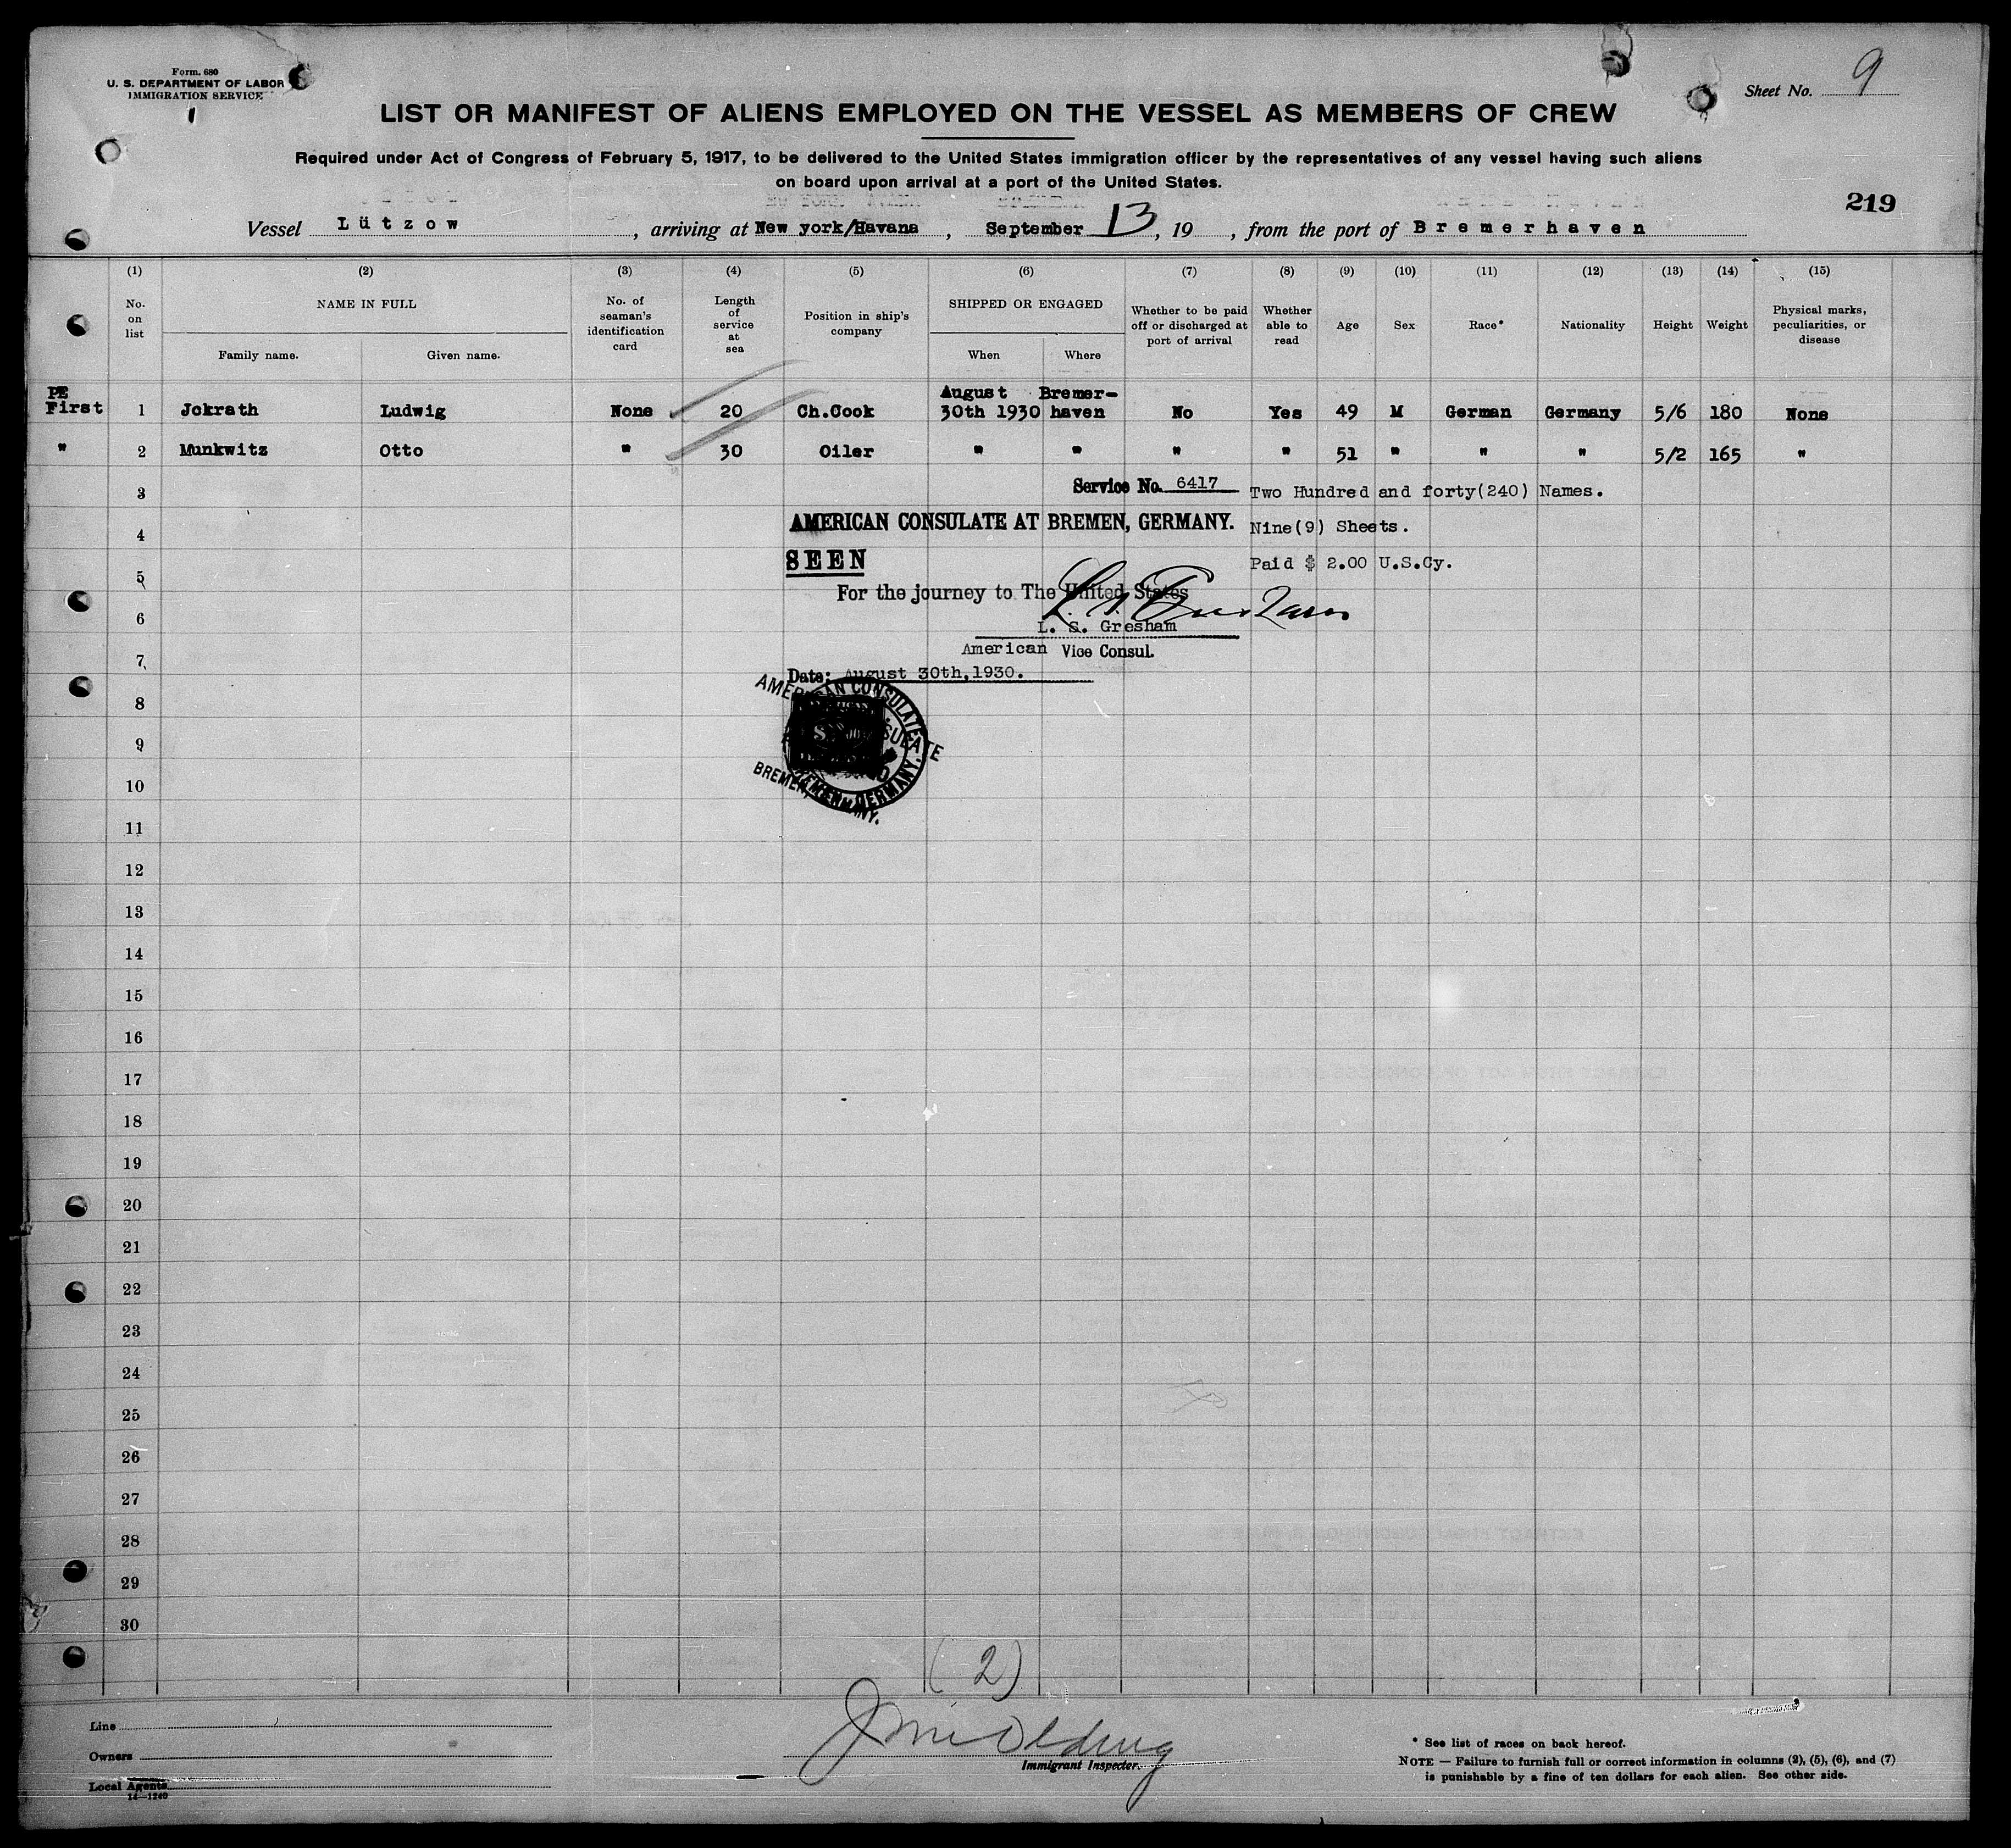 Form. 680
U. S. DEPARTMENT OF LABOR
IMMIGRATION SERVICE
Sheet No. 9
LIST OR MANIFEST OF ALIENS EMPLOYED ON THE VESSEL AS MEMBERS OF CREW
Required under Act of Congress of February 5, 1917, to be delivered to the United States immigration officer by the representatives of any vessel having such aliens
on board upon arrival at a port of the United States.
219
Vessel Lützow, arriving at New york/Havana, September 13, 19 , from the port of Bremerhaven
(1) (2) (3) (4) (5) (6) (7) (8) (9) (10) (11) (12) (13) (14) (15)
No. on list
NAME IN FULL
Family name. Given name.
No. of seaman's identification card
Length of service at sea
Position in ship's company
SHIPPED OR ENGAGED
When Where
Whether to be paid off or discharged at port of arrival
Whether able to read
Age
Sex
Race*
Nationality
Height
Weight
Physical marks, peculiarities, or disease
PE August Bremer-
First 1 Jokrath Ludwig None 20 Ch.Cook 30th 1930 haven No Yes 49 M German Germany 5/6 180 None
" 2 Munkwitz Otto " 30 Oiler " " " " 51 " " " 5/2 165 "
3 Service No. 6417 Two Hundred and forty(240) Names.
4 AMERICAN CONSULATE AT BREMEN, GERMANY. Nine(9) Sheets.
5 SEEN Paid $ 2.00 U.S.Cy.
For the journey to The United States
6 L. S. Gresham
7 American Vice Consul.
Date: August 30th,1930.
8
AMERICAN CONSULATE
BREMEN, GERMANY.
9
10
11
12
13
14
15
16
17
18
19
20
21
22
23
24
25
26
27
28
29
30
(2)
Line
Owners
Local Agents
14—1240
Immigrant Inspector.
* See list of races on back hereof.
NOTE — Failure to furnish full or correct information in columns (2), (5), (6), and (7)
is punishable by a fine of ten dollars for each alien. See other side.